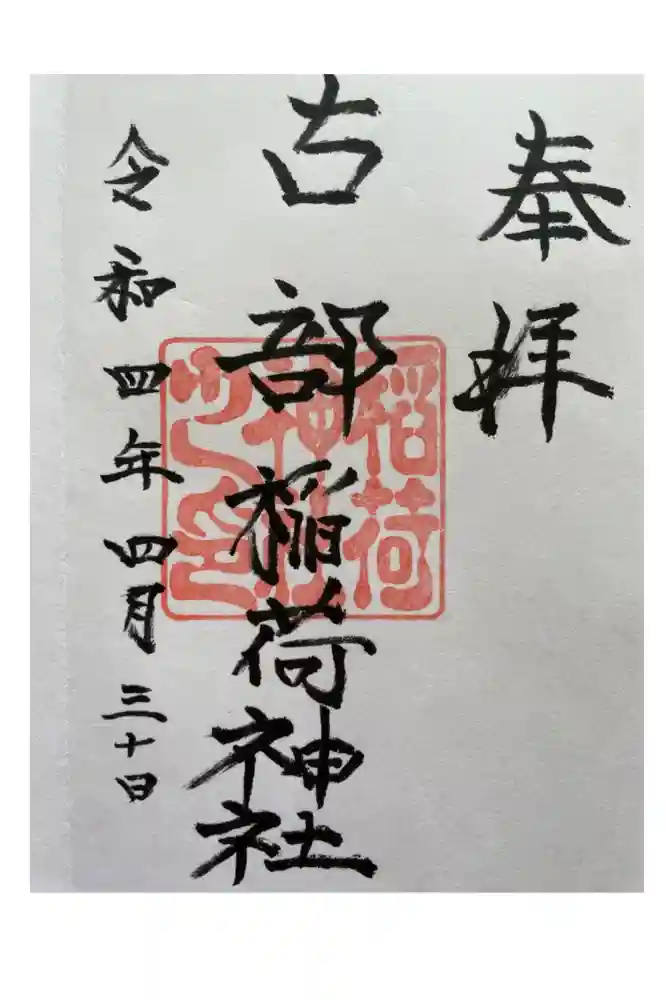 奉拝
古部稲荷神社
令和四年四月三十日
稲荷
神社